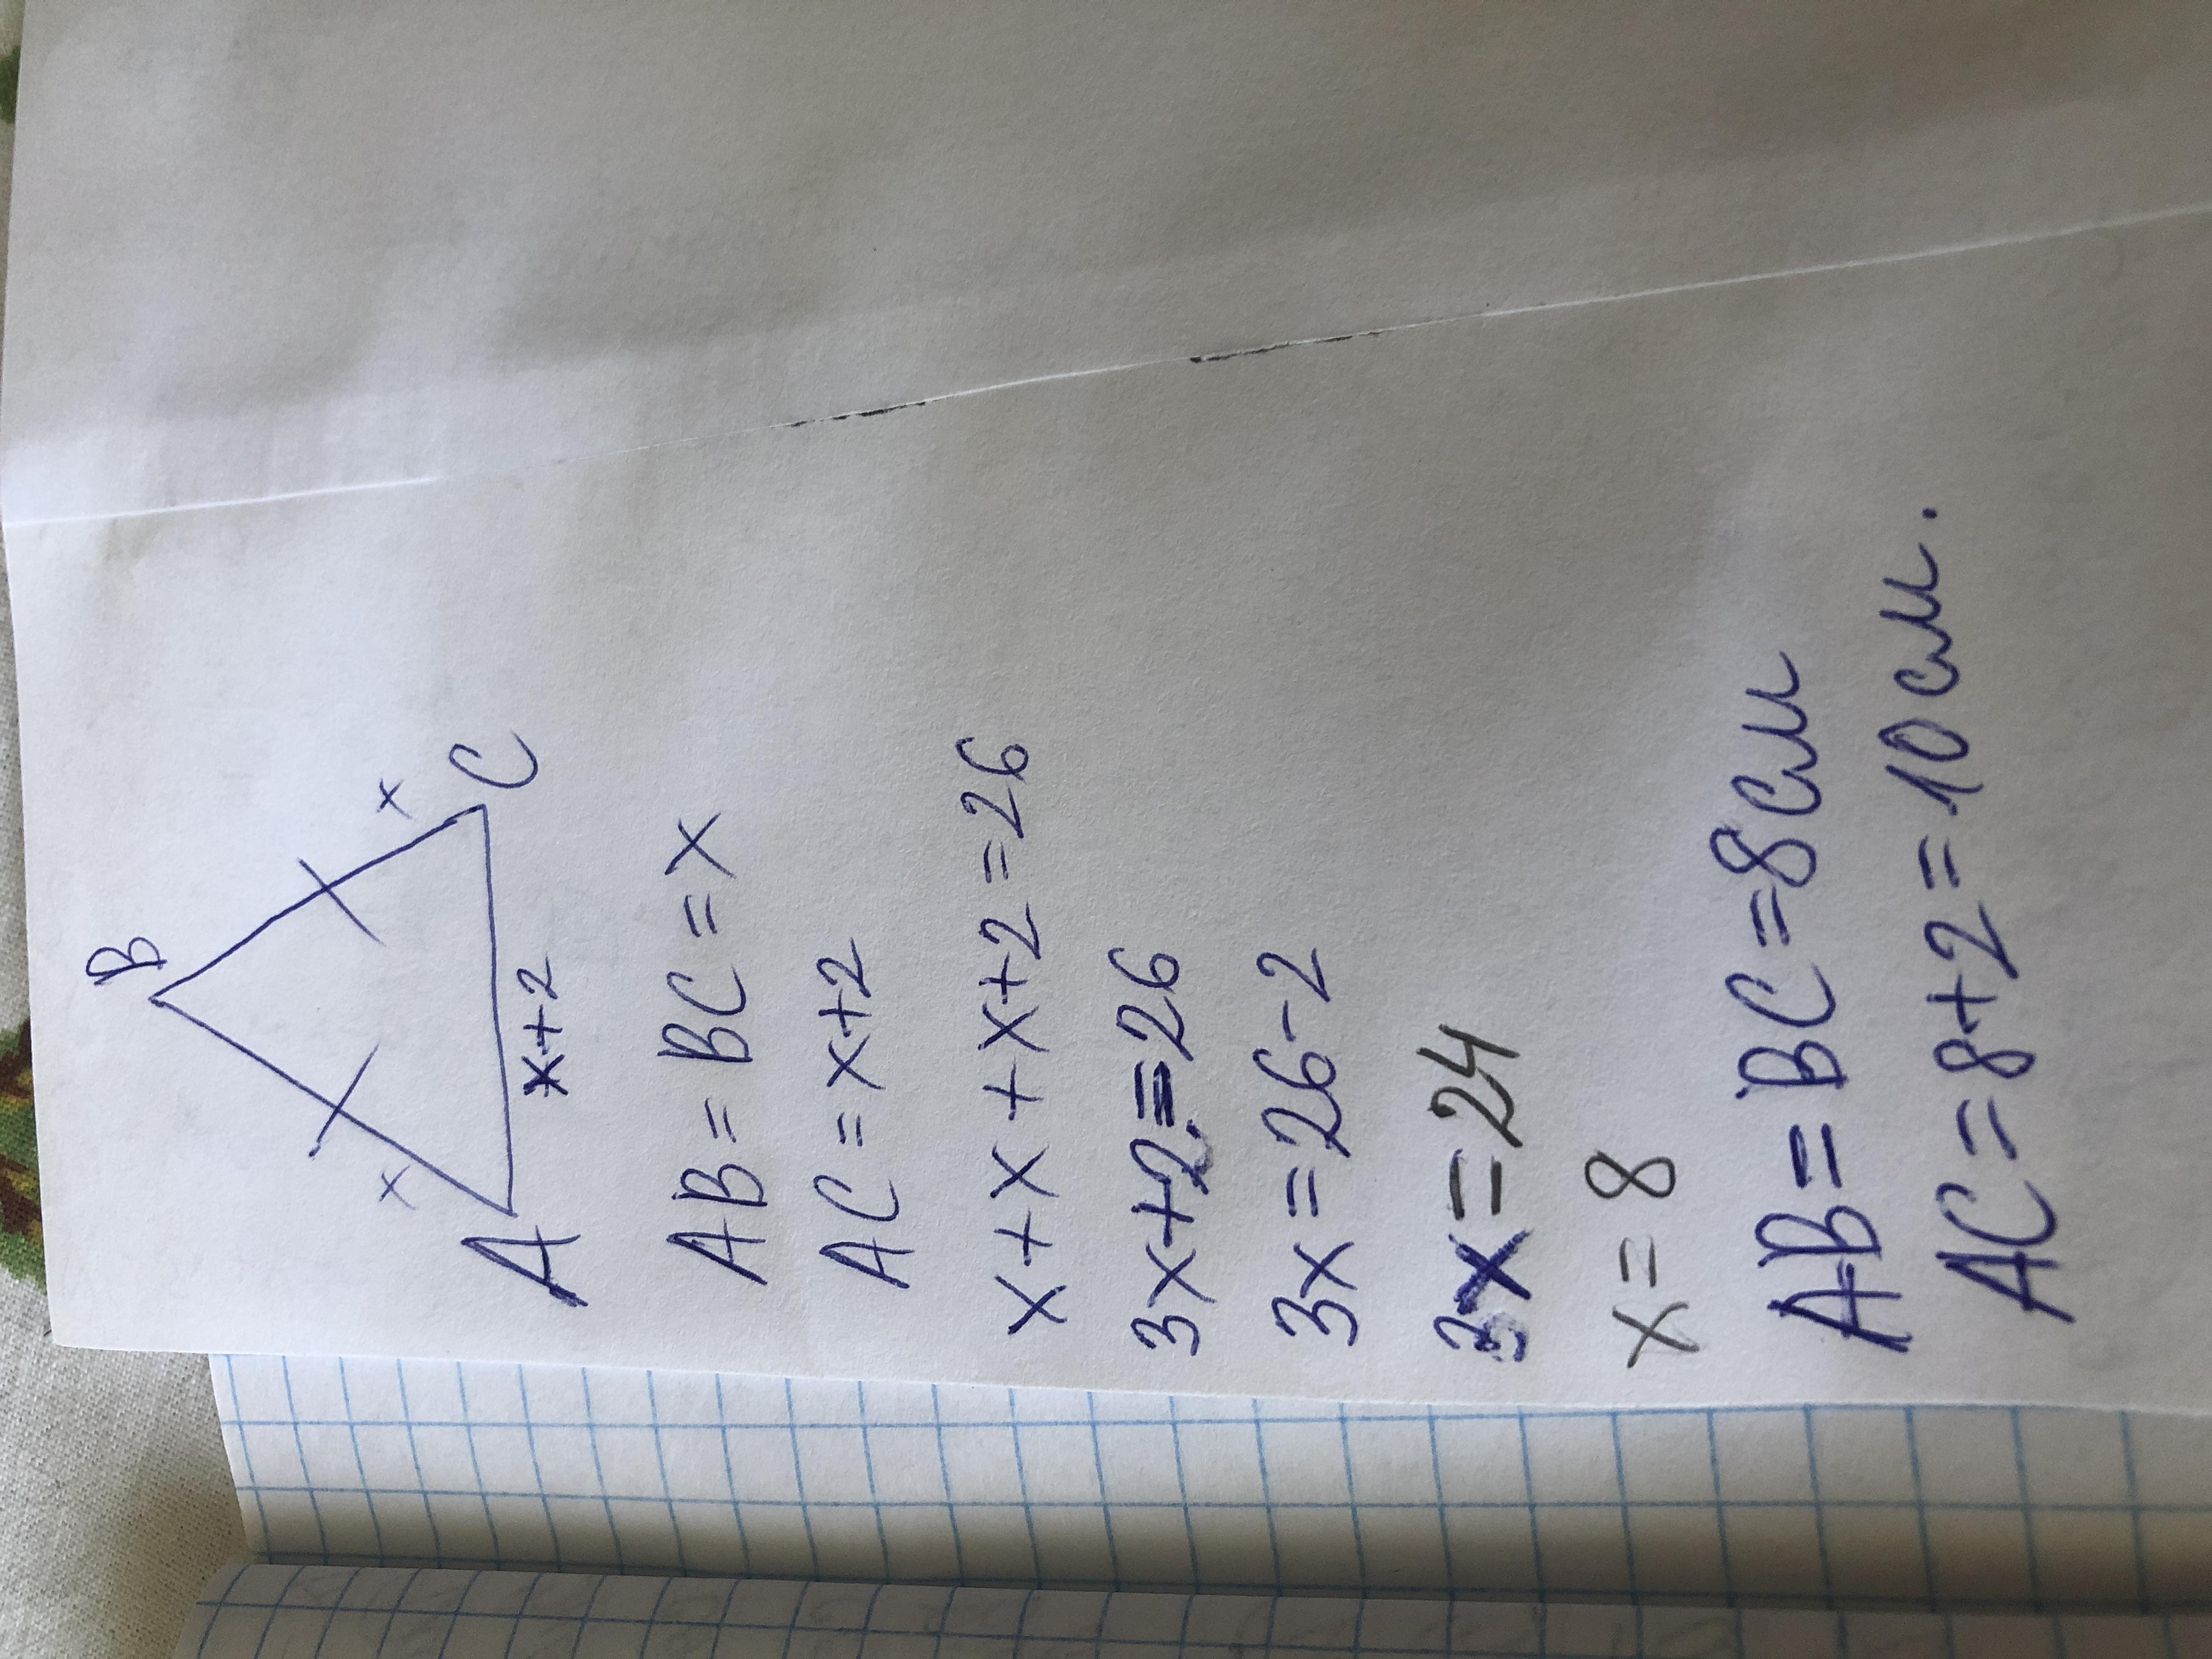 B
x x
A C
x+2
AB = BC = x
AC = x+2
x + x + x+2 = 26
3x+2=26
3x = 26-2
3x = 24
x = 8
AB = BC = 8см
AC = 8+2 = 10 см.